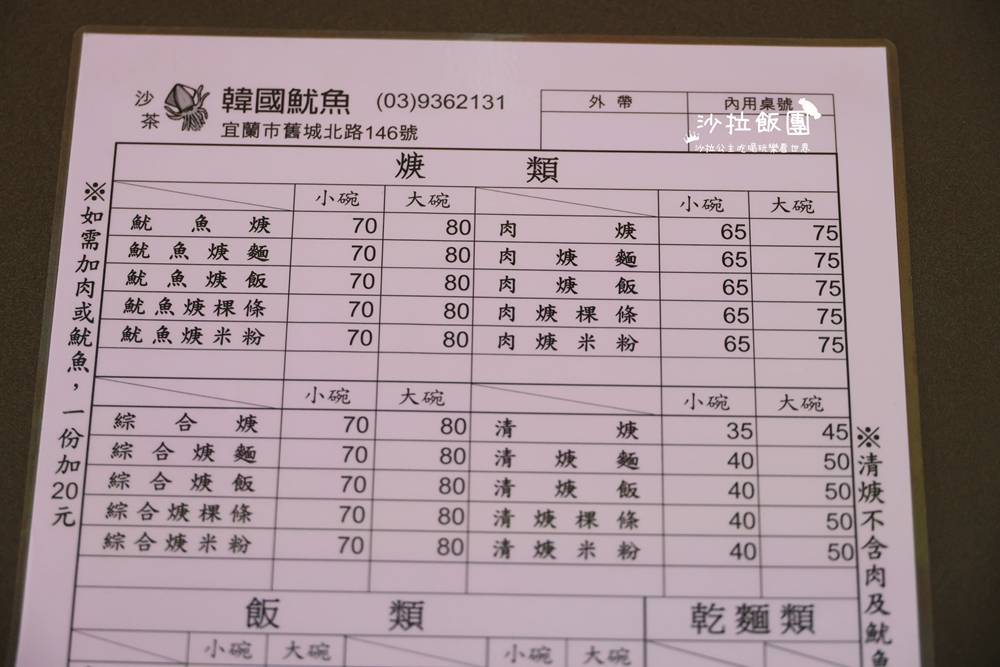 沙茶 韓國魷魚 (03)9362131
宜蘭市舊城北路146號
外帶 內用桌號
沙拉飯團
沙拉公主吃喝玩樂看世界
焿 類
小碗 大碗 小碗 大碗
魷魚焿 70 80 肉焿 65 75
魷魚焿麵 70 80 肉焿麵 65 75
魷魚焿飯 70 80 肉焿飯 65 75
魷魚焿粿條 70 80 肉焿粿條 65 75
魷魚焿米粉 70 80 肉焿米粉 65 75
小碗 大碗 小碗 大碗
綜合焿 70 80 清焿 35 45
綜合焿麵 70 80 清焿麵 40 50
綜合焿飯 70 80 清焿飯 40 50
綜合焿粿條 70 80 清焿粿條 40 50
綜合焿米粉 70 80 清焿米粉 40 50
飯 類 乾麵類
小碗 大碗 小碗 大碗
※如需加肉或魷魚，一份加20元
※清焿不含肉及魷魚